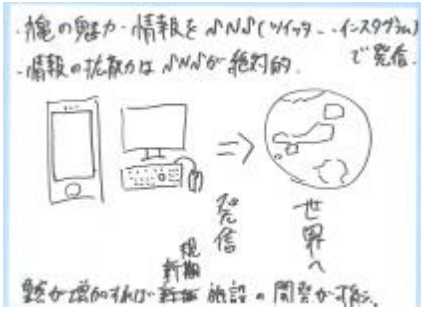 ・の魅力・情報をSNS(ツイッター、インスタグラム)
で発信.
・情報の拡散力はSNSが絶対的.
⇒
発信
世界へ
新規
が増加すれば 施設の開発が